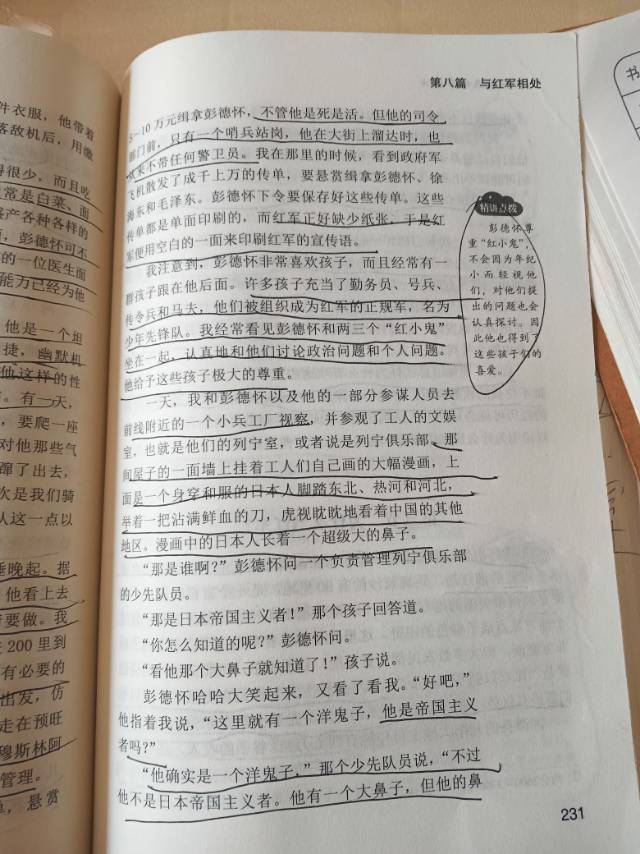 件衣服，他带着
客敌机后，用缴
得很少，而且吃
常是白菜、面
产各种各样的
彭德怀可不
的一位医生面
能力已经为他
他是一个坦
捷，幽默机
他这样的性
有一天，
要爬一座
对他那些气
蹿了出去，
次是我们骑
认这一点以
睡晚起。据
他看上去
要做。我
200 里到
有必要的
出发，仿
走在预旺
穆斯林阿
管理。
悬赏
第八篇 与红军相处
5—10 万元缉拿彭德怀，不管他是死是活。但他的司令
部门前，只有一个哨兵站岗，他在大街上溜达时，也
从来不带任何警卫员。我在那里的时候，看到政府军
飞机散发了成千上万的传单，要悬赏缉拿彭德怀、徐
海东和毛泽东。彭德怀下令要保存好这些传单。这些
传单都是单面印刷的，而红军正好缺少纸张，于是红
军便用空白的一面来印刷红军的宣传语。
我注意到，彭德怀非常喜欢孩子，而且经常有一
群孩子跟在他后面。许多孩子充当了勤务员、号兵、
传令兵和马夫，他们被组织成为红军的正规军，名为
少年先锋队。我经常看见彭德怀和两三个“红小鬼”
坐在一起，认真地和他们讨论政治问题和个人问题。
他给予这些孩子极大的尊重。
一天，我和彭德怀以及他的一部分参谋人员去
前线附近的一个小兵工厂视察，并参观了工人的文娱
室，也就是他们的列宁室，或者说是列宁俱乐部。那
间屋子的一面墙上挂着工人们自己画的大幅漫画，上
面是一个身穿和服的日本人脚踏东北、热河和河北，
举着一把沾满鲜血的刀，虎视眈眈地看着中国的其他
地区。漫画中的日本人长着一个超级大的鼻子。
“那是谁啊？”彭德怀问一个负责管理列宁俱乐部
的少先队员。
“那是日本帝国主义者！”那个孩子回答道。
“你怎么知道的呢？”彭德怀问。
“看他那个大鼻子就知道了！”孩子说。
彭德怀哈哈大笑起来，又看了看我。“好吧，”
他指着我说，“这里就有一个洋鬼子，他是帝国主义
者吗？”
“他确实是一个洋鬼子，”那个少先队员说，“不过
他不是日本帝国主义者。他有一个大鼻子，但他的鼻
精讲点拨
彭德怀尊
重“红小鬼”，
不会因为年纪
小而轻视他
们，对他们提
出的问题也会
认真探讨。因
此他也得到了
这些孩子们的
喜爱。
231
书